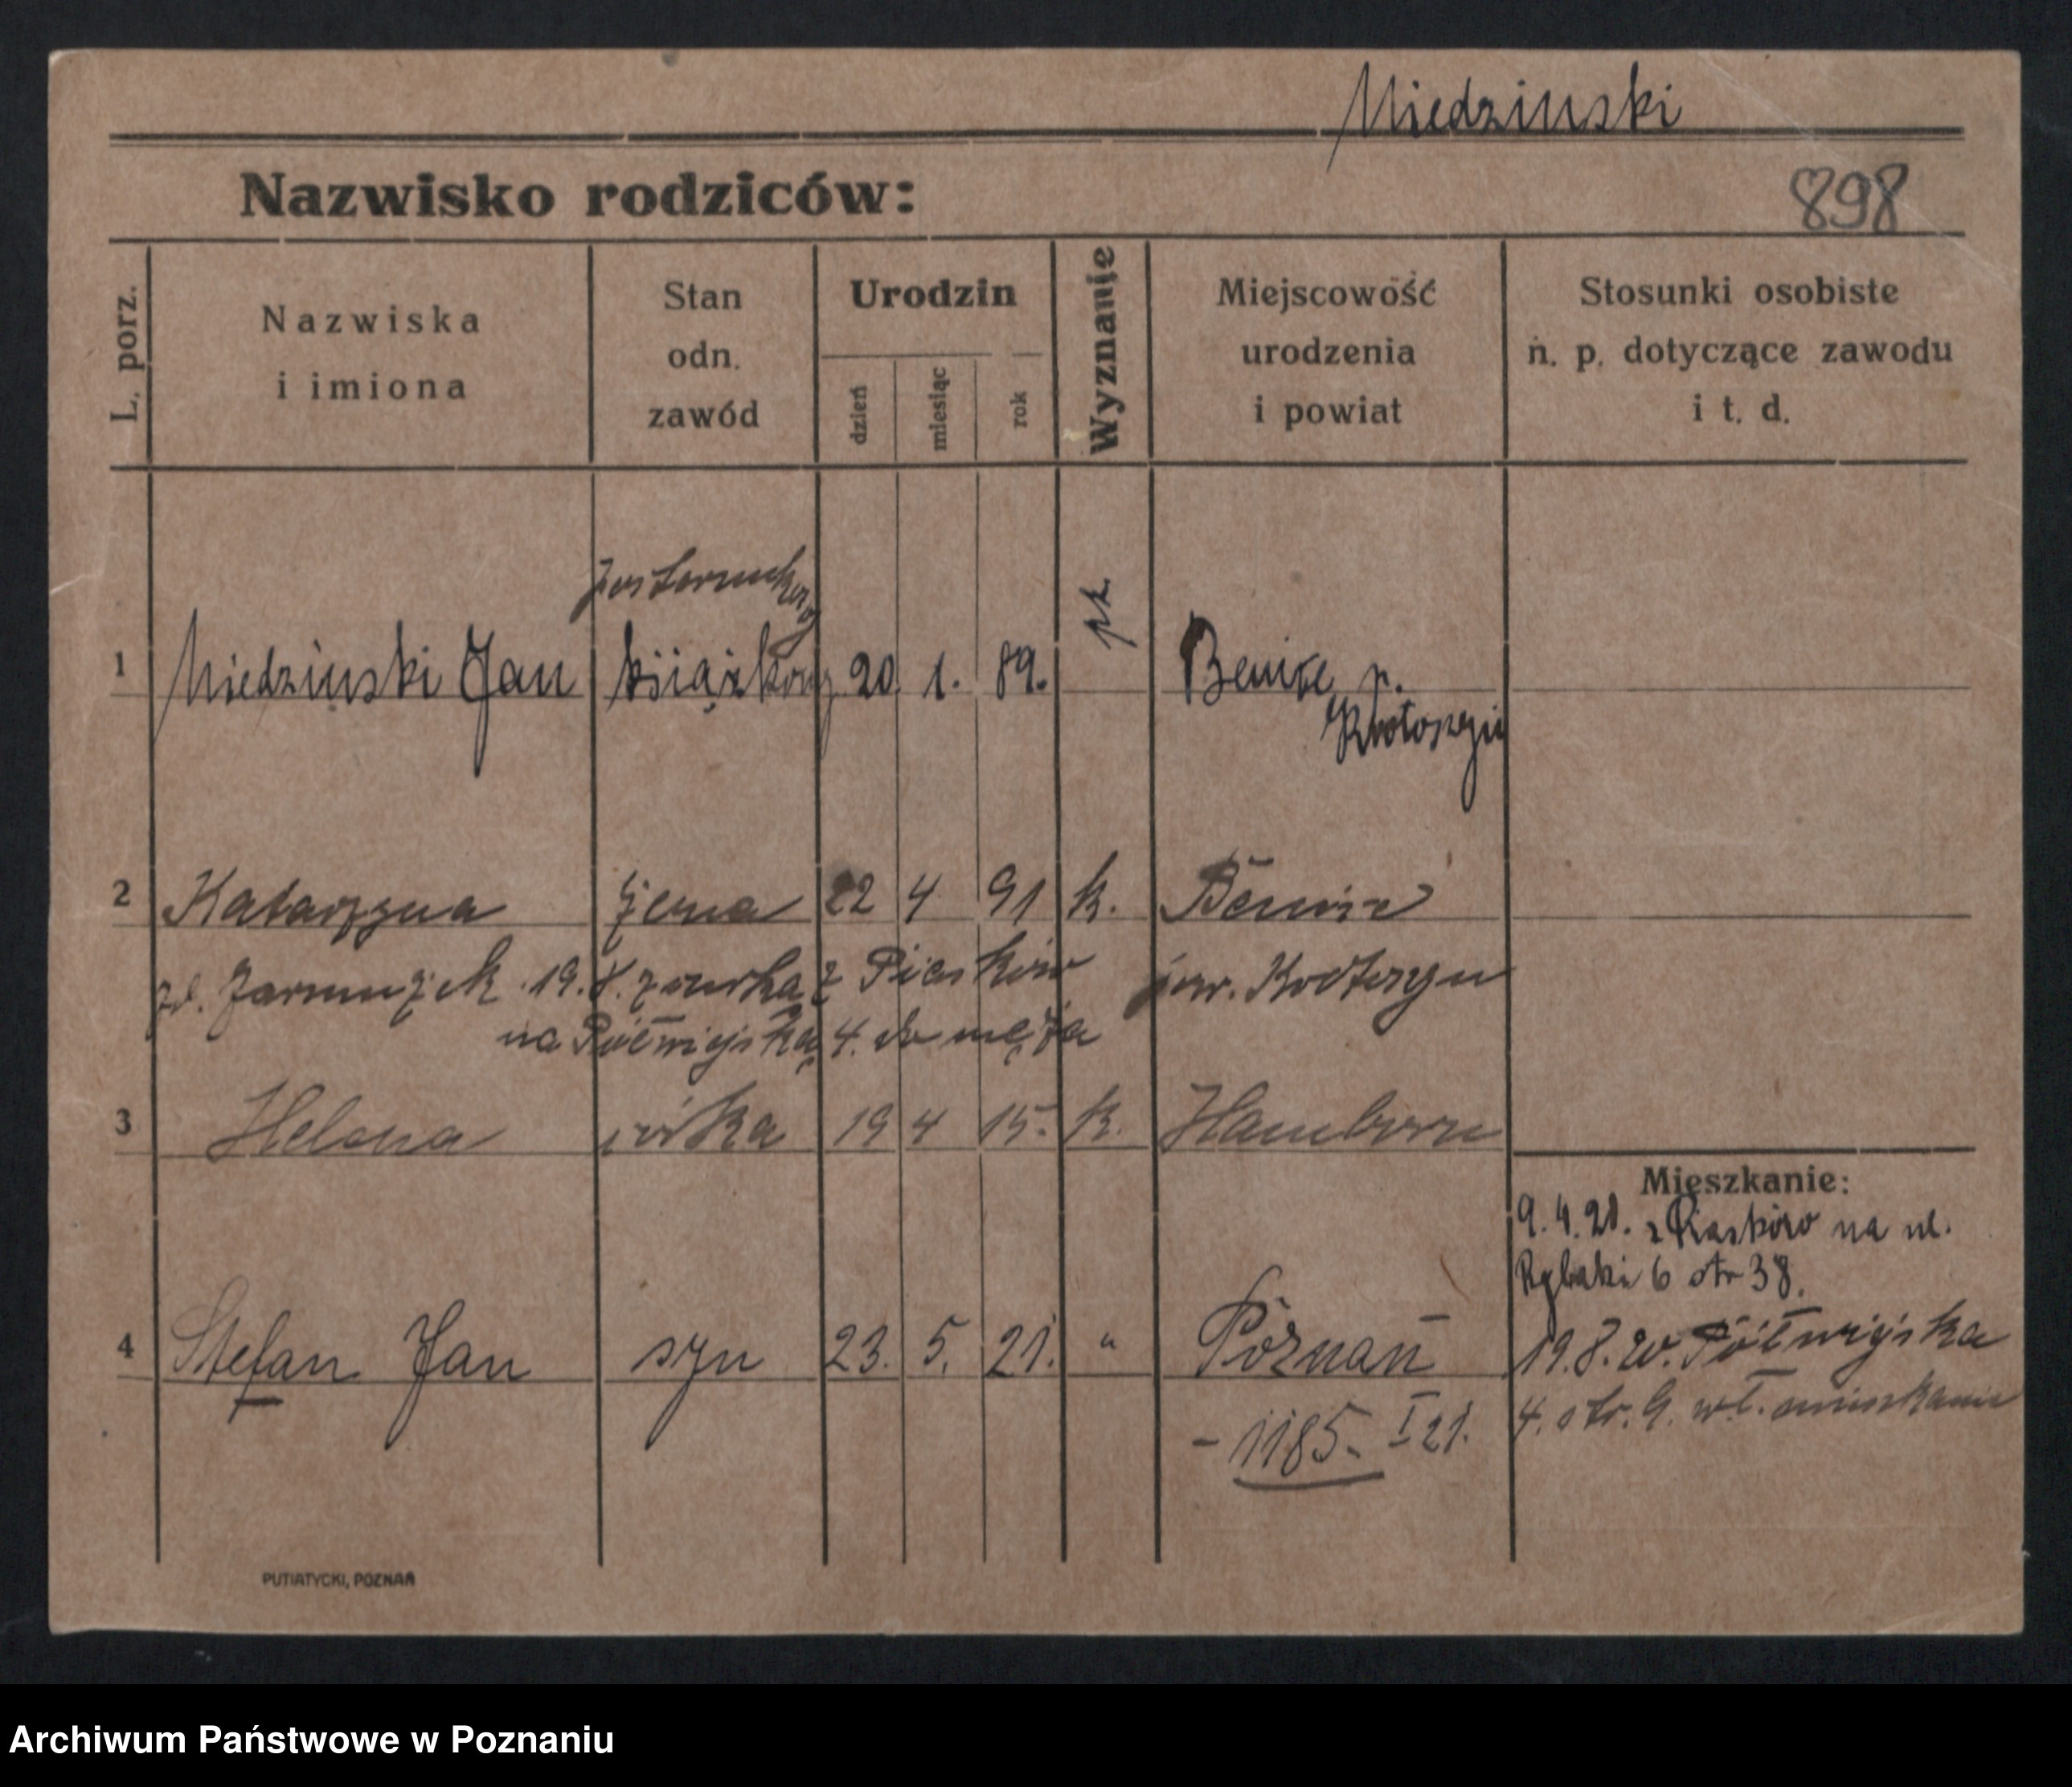 Miedzinski
Nazwisko rodziców:
898
L. porz.
Nazwiska
i imiona
Stan
odn.
zawód
Urodzin
dzień
miesiąc
rok
Wyznanie
Miejscowość
urodzenia
i powiat
Stosunki osobiste
n. p. dotyczące zawodu
i t. d.
1 Miedzinski Jan 20 1. 89. p.
2 Katarzyna żona 22 4 91 k.
19. 8. z Piasków pow.
na Półwiejską 4. do męża
3 Helena córka 19 4 15. k. Hamborn
Mieszkanie:
9. 4. 21. z Piasków na ul.
Rybaki 6 otr 38.
4 Stefan Jan syn 23. 5. 21. " Poznań
19. 8. Półwiejska
4. otr. 9. wł.
- 1185. I 21.
PUTIATYCKI, POZNAŃ
Archiwum Państwowe w Poznaniu